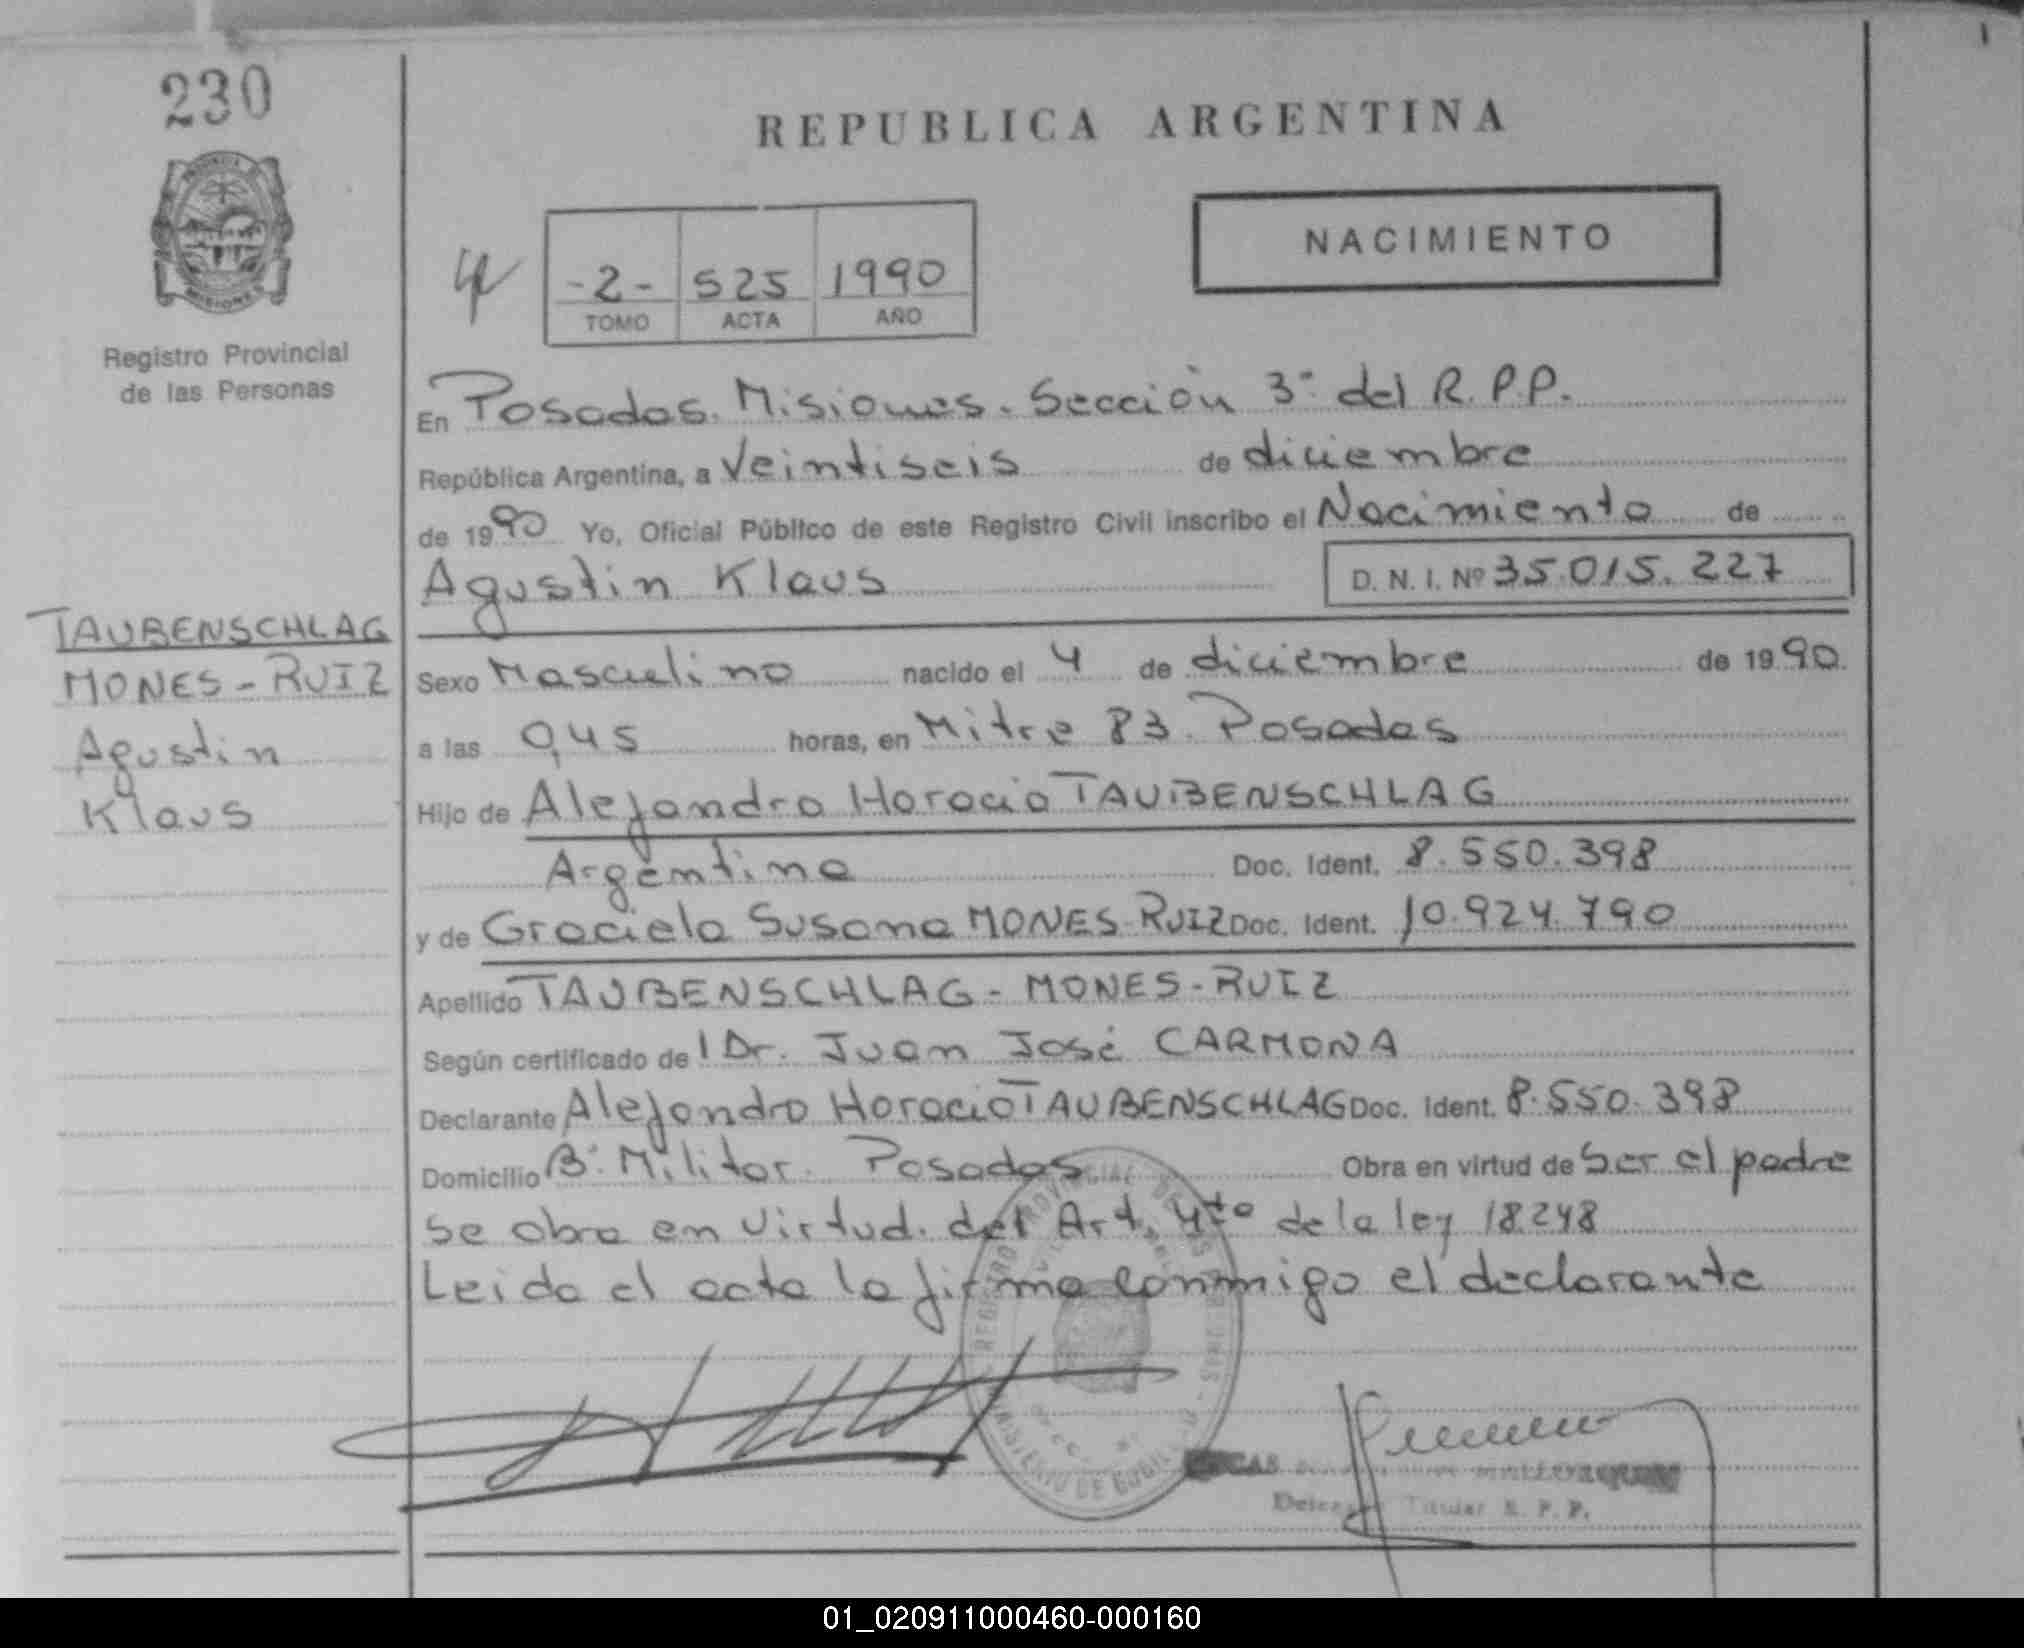 230
PROVINCIA
MISIONES
Registro Provincial
de las Personas
TAUBENSCHLAG
MONES-RUIZ
Agustin
Klaus
REPUBLICA ARGENTINA
-2- 525 1990
TOMO ACTA AÑO
NACIMIENTO
En Posadas. Misiones. Sección 3º del R.P.P.
República Argentina, a Veintiseis de diciembre
de 1990 Yo, Oficial Público de este Registro Civil inscribo el Nacimiento de
Agustin Klaus D. N. I. Nº 35.015.227
Sexo Masculino nacido el 4 de diciembre de 1990
a las 9,45 horas, en Mitre 83. Posadas
Hijo de Alejandro Horacio TAUBENSCHLAG
Argentino Doc. Ident. 8.550.398
y de Graciela Susana MONES-RUIZ Doc. Ident. 10.924.790
Apellido TAUBENSCHLAG - MONES-RUIZ
Según certificado de l Dr. Juan José CARMONA
Declarante Alejandro Horacio TAUBENSCHLAG Doc. Ident. 8.550.398
Domicilio Bº Militar. Posadas Obra en virtud de Ser el padre
se obra en virtud. del Art. 4to de la ley 18.248
Leida el acta la firma conmigo el declarante
Titular R. P. P.
01_020911000460-000160